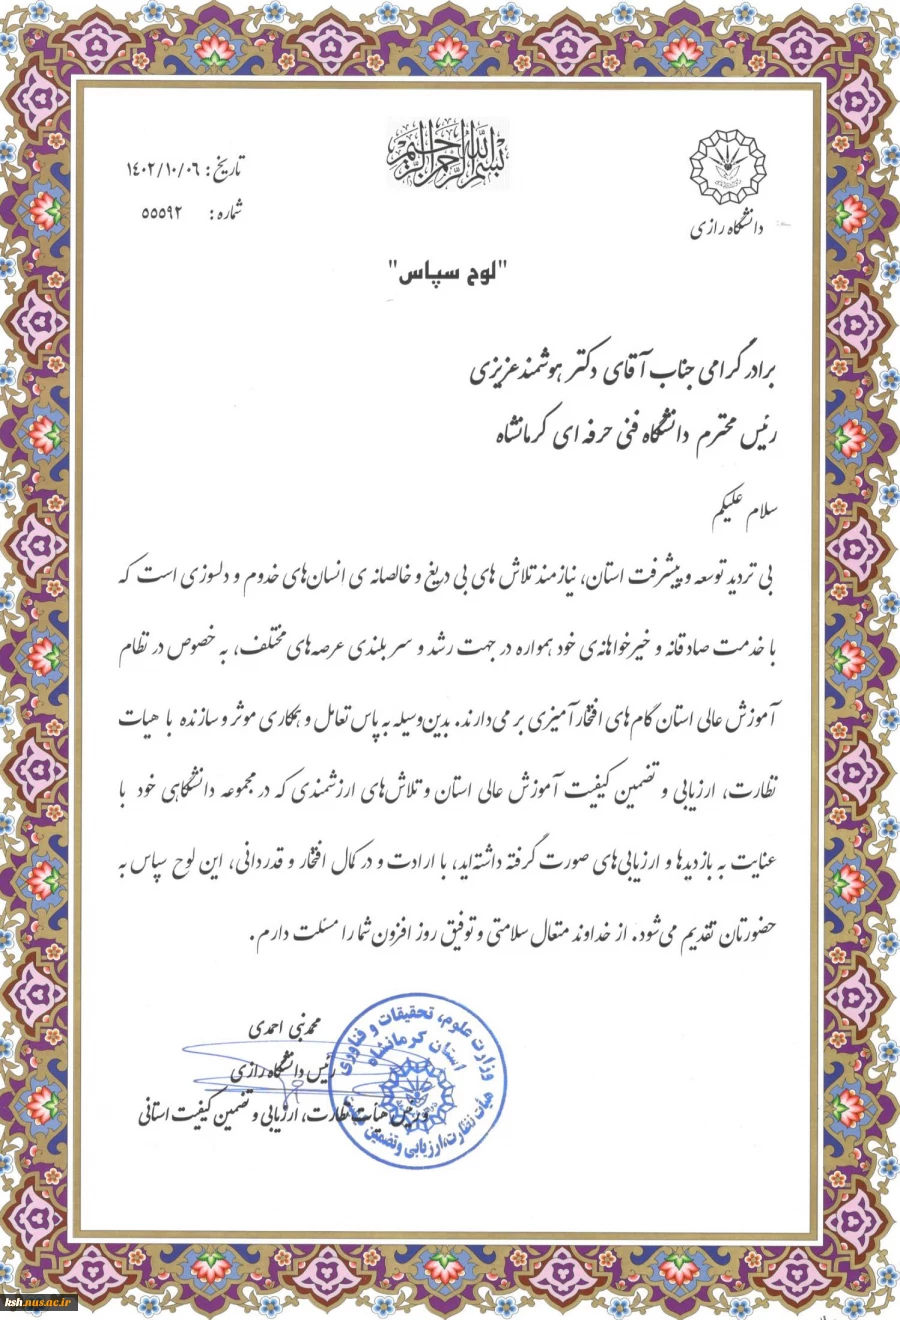 بسم الله الرحمن الرحیم
دانشگاه رازی
تاریخ: ۱۴۰۲/۱۰/۰۶
شماره: ۵۵۵۹۲
"لوح سپاس"
برادر گرامی جناب آقای دکتر هوشمند عزیزی
رئیس محترم دانشگاه فنی حرفه ای کرمانشاه
سلام علیکم
بی تردید توسعه و پیشرفت استان، نیازمند تلاش های بی دریغ و خالصانه ی انسان‌های خدوم و دلسوزی است که
با خدمت صادقانه و خیرخواهانه‌ی خود همواره در جهت رشد و سربلندی عرصه‌های مختلف، به خصوص در نظام
آموزش عالی استان گام های افتخارآمیزی بر می‌دارند. بدین‌وسیله به پاس تعامل و همکاری موثر و سازنده با هیات
نظارت، ارزیابی و تضمین کیفیت آموزش عالی استان و تلاش‌های ارزشمندی که در مجموعه دانشگاهی خود با
عنایت به بازدیدها و ارزیابی‌های صورت گرفته داشته‌اید، با ارادت و در کمال افتخار و قدردانی، این لوح سپاس به
حضورتان تقدیم می‌شود. از خداوند متعال سلامتی و توفیق روز افزون شما را مسئلت دارم.
محمدنبی احمدی
رئیس دانشگاه رازی
و رئیس هیأت نظارت، ارزیابی و تضمین کیفیت استانی
وزارت علوم، تحقیقات و فناوری
استان کرمانشاه
هیأت نظارت، ارزیابی و تضمین
ksh.nus.ac.ir